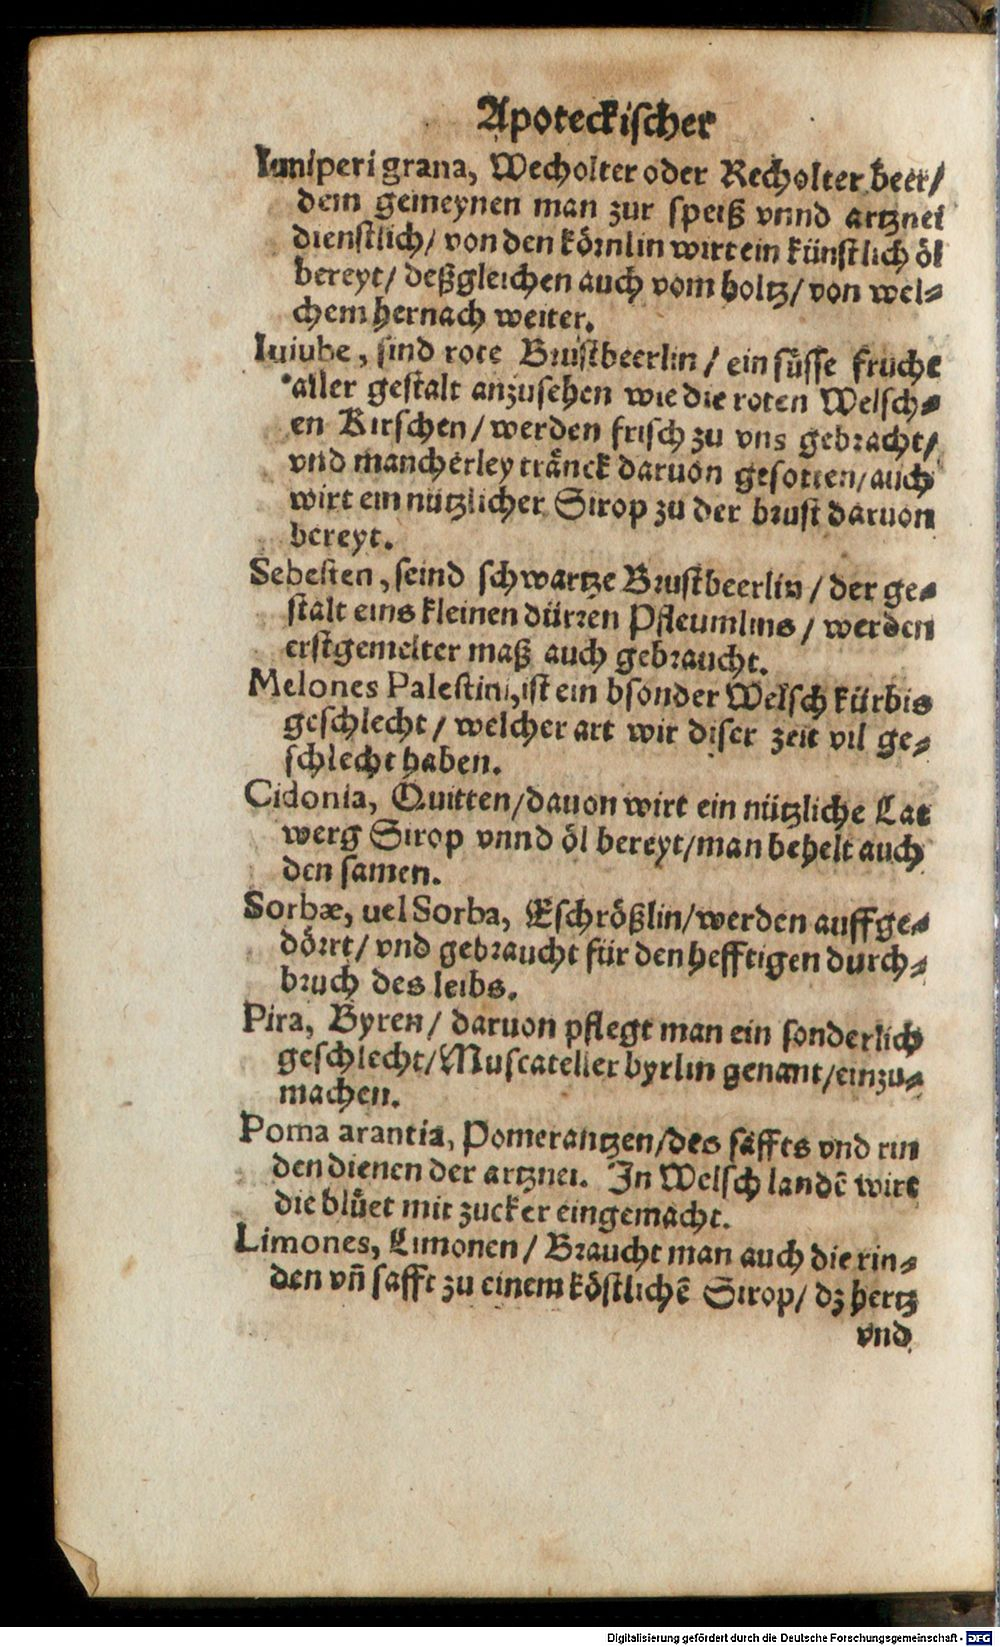 Apoteckischer
Iuniperi grana, Wecholter oder Recholter beer/
dem gemeynen man zur speiß vnnd artznei
dienstlich/ von den körnlin wirt ein künstlich öl
bereyt/ deßgleichen auch vom holtz/ von wel⸗
chem hernach weiter.
Iuiube, sind rote Brustbeerlin / ein süsse frucht
aller gestalt anzusehen wie die roten Welsch⸗
en Kirschen/ werden frisch zu vns gebracht/
vnd mancherley tränck daruon gesotten/ auch
wirt ein nützlicher Sirop zu der brust daruon
bereyt.
Sebesten, seind schwartze Brustbeerlin / der ge⸗
stalt eins kleinen dürren Pfleumlins / werden
erstgemelter maß auch gebraucht.
Melones Palestini, ist ein bsonder Welsch kürbis
geschlecht / welcher art wir diser zeit vil ge⸗
schlecht haben.
Cidonia, Quitten/dauon wirt ein nützliche Lat
werg Sirop vnnd öl bereyt/man behelt auch
den samen.
Sorbæ, uel Sorba, Eschrößlin/werden auffge⸗
dörrt/ vnd gebraucht für den hefftigen durch⸗
bruch des leibs.
Pira, Byren/ daruon pflegt man ein sonderlich
geschlecht/Muscateller byrlin genant/einzu⸗
machen.
Poma arantia, Pomerantzen/des säffts vnd rin
den dienen der artznei. In Welsch landē wirt
die blüet mit zucker eingemacht.
Limones, Limonen / Braucht man auch die rin⸗
den vñ safft zu einem köstlichē Sirop/ dz hertz
vnd
Digitalisierung gefördert durch die Deutsche Forschungsgemeinschaft - DFG